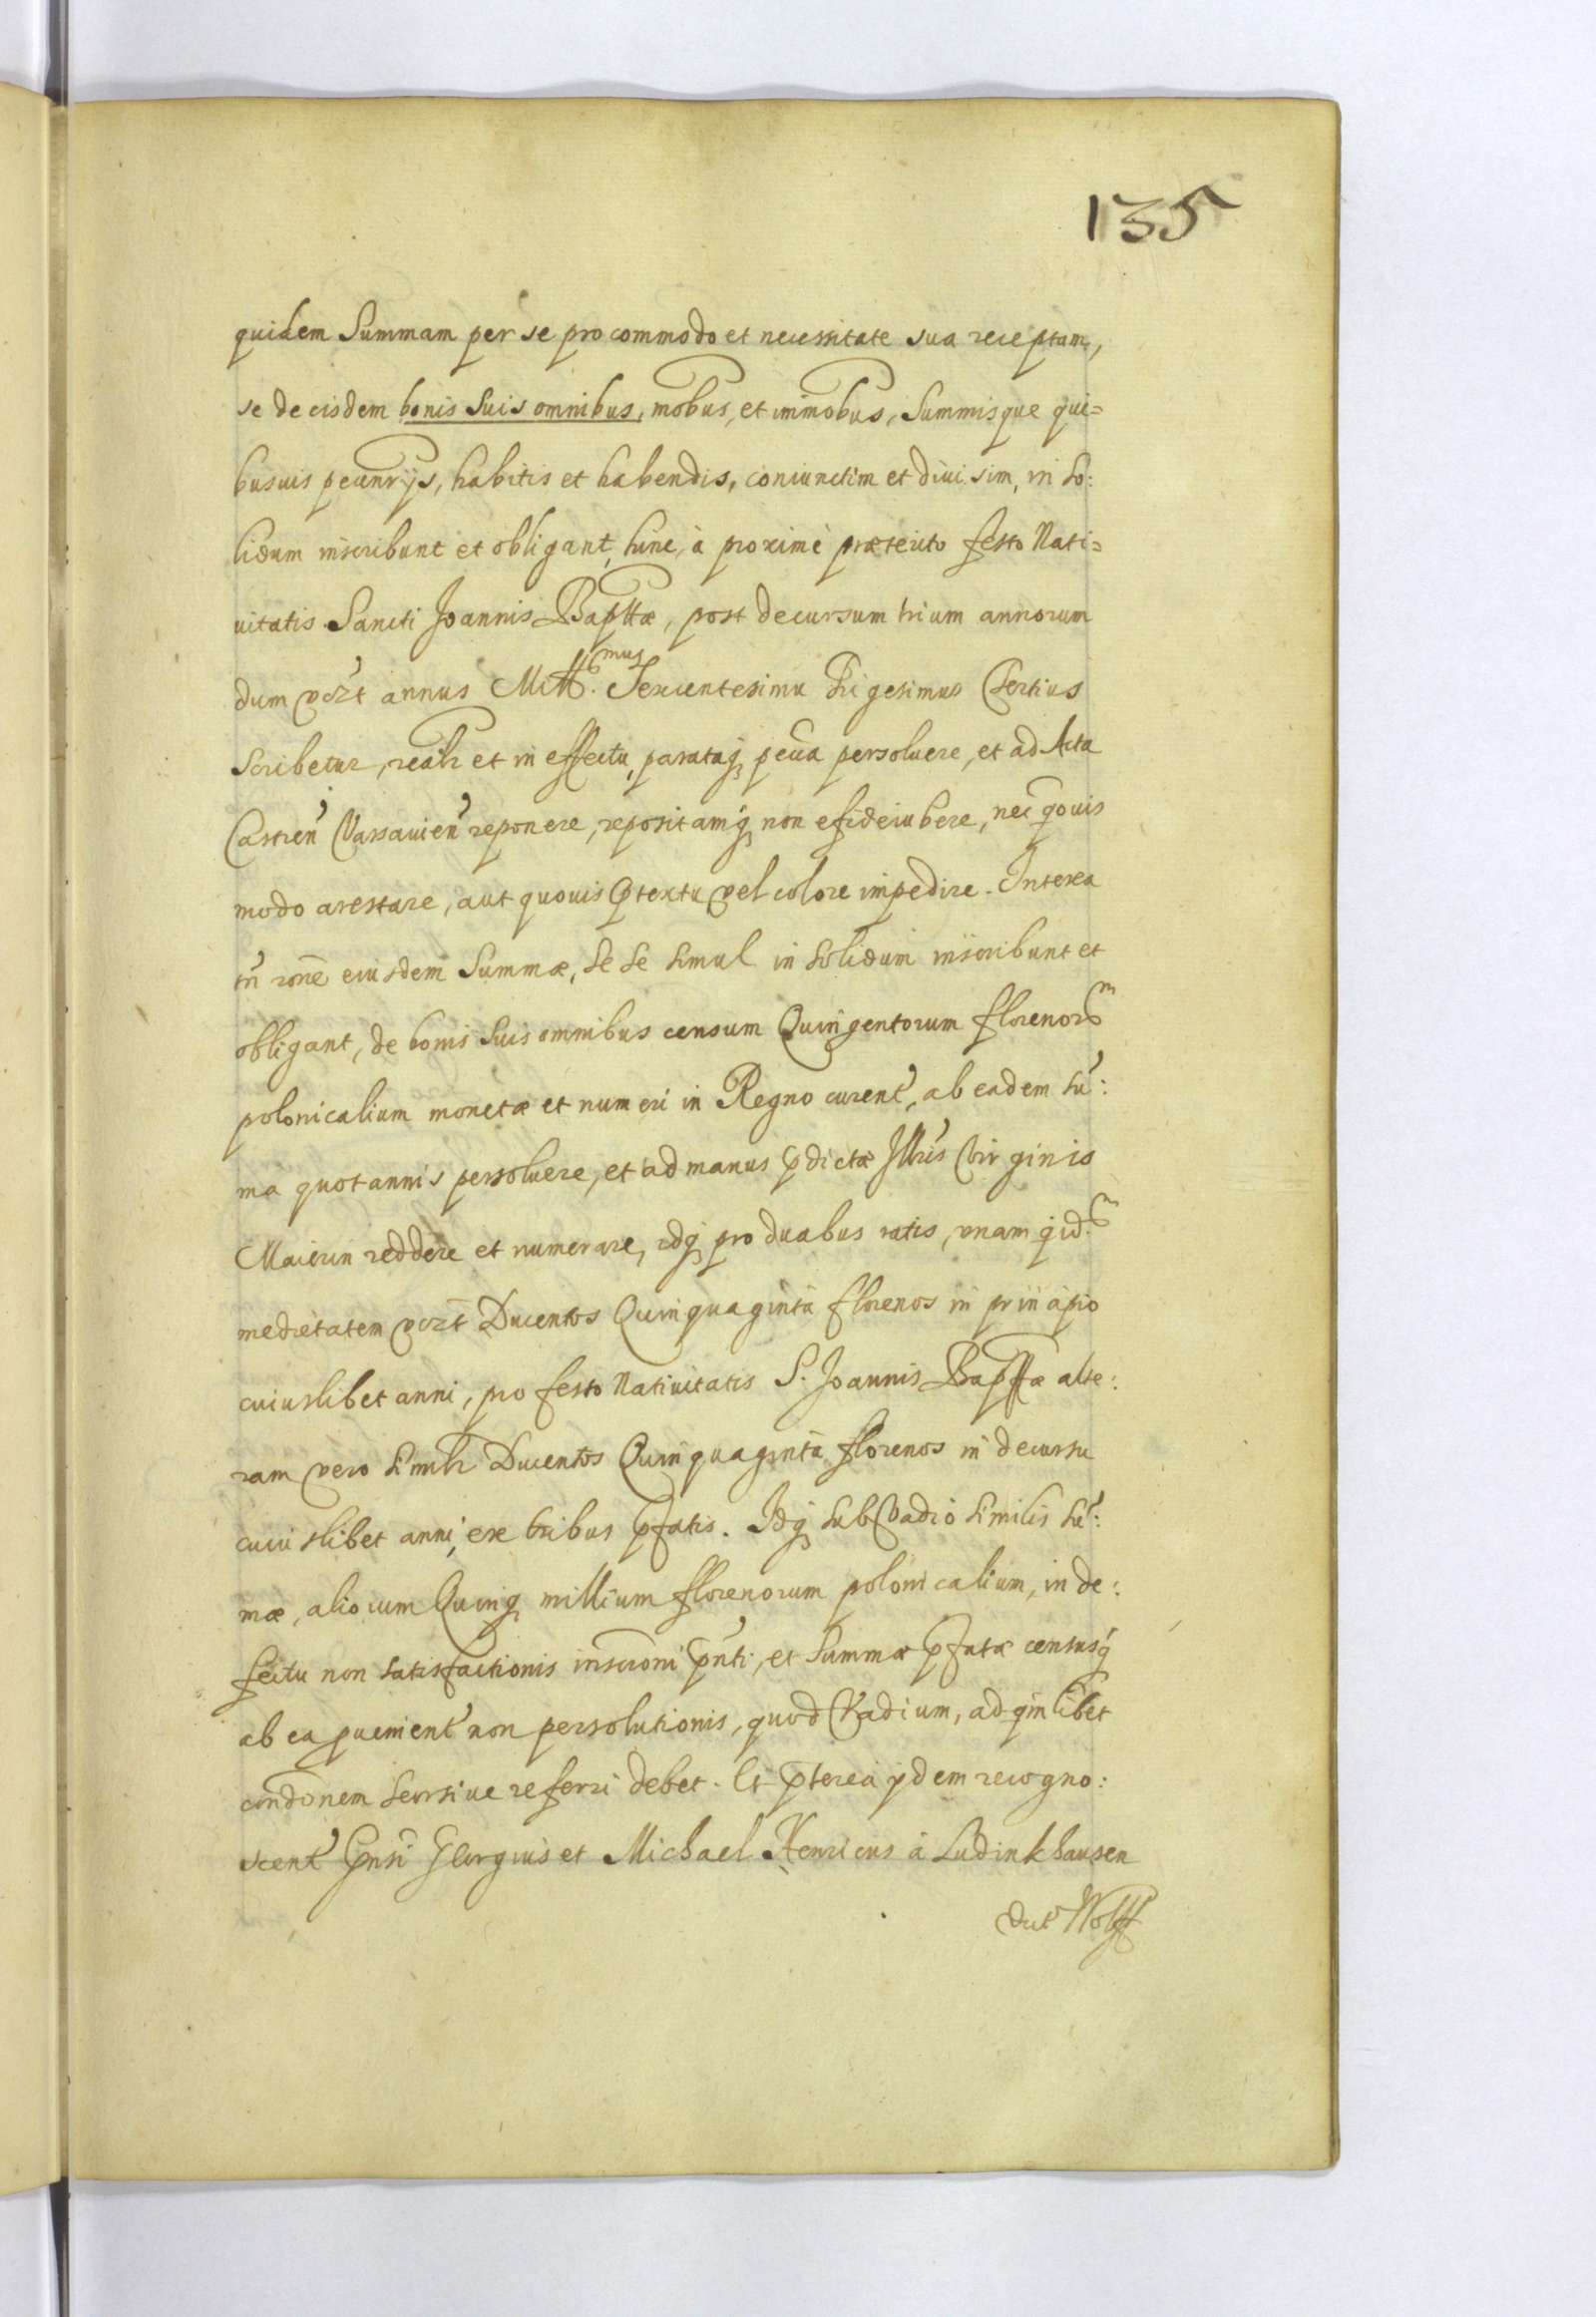 135
quidem Summam per se pro commodo et necessitate sua receptam,
se de eisdem bonis suis omnibus, mobus, et immobus, Summisque qui=
busuis pecunrijs, habitis et habendis, coniunctim et diuisim, in so:
lidum inscribunt et obligant, hinc, à proximè præterito festo Nati=
uitatis Sancti Joannis Baptae, post decursum trium annorum
dum vozt annus Mill.mus Sexcentesimus Trigesimus Tertius
scribetur, realr et in effectu, parataq pecua persoluere, et ad Acta
Castren Varsauien reponere, repositamq non efideiubere, nec qouis
modo arestare, aut quouis ptextu vel colore impedire. Interea
tn rone eiusdem Summæ, se se simul in solidum inscribunt et
obligant, de bonis suis omnibus censum Quingentorum florenorum
polonicalium monetæ et numeri in Regno curent, ab eadem su:
ma quotannis persoluere, et ad manus pdictæ Illris Virginis
Maierin reddere et numerare, idq pro duabus ratis, vnam qid.m
medietatem vozt Ducentos Quinquaginta florenos in principio
cuiuslibet anni, pro festo Natiuitatis S. Joannis Baptae alte:
ram vero similr Ducentos Quinquaginta florenos in decursu
cuiuslibet anni, ex tribus pfatis. Idq sub Vadio similis su:
mæ, aliorum Quinq millium florenorum polonicalium, in de:
fectu non satisfactionis inscroni pnti, et Summæ pfatæ censusq
ab ea puenient non persolutionis, quod Vadium, ad qmlibet
condonem seorsiue referri debet. Et pterea ydem recogno:
scent Gnsi Georgius et Michael Henricus à Ludinkhausen
dict Wolff